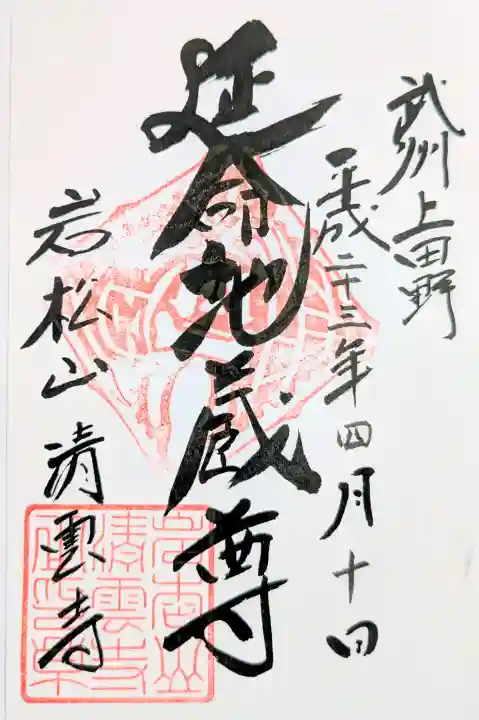 武州上田野
平成二十三年四月十日
延命地蔵尊
岩松山清雲寺